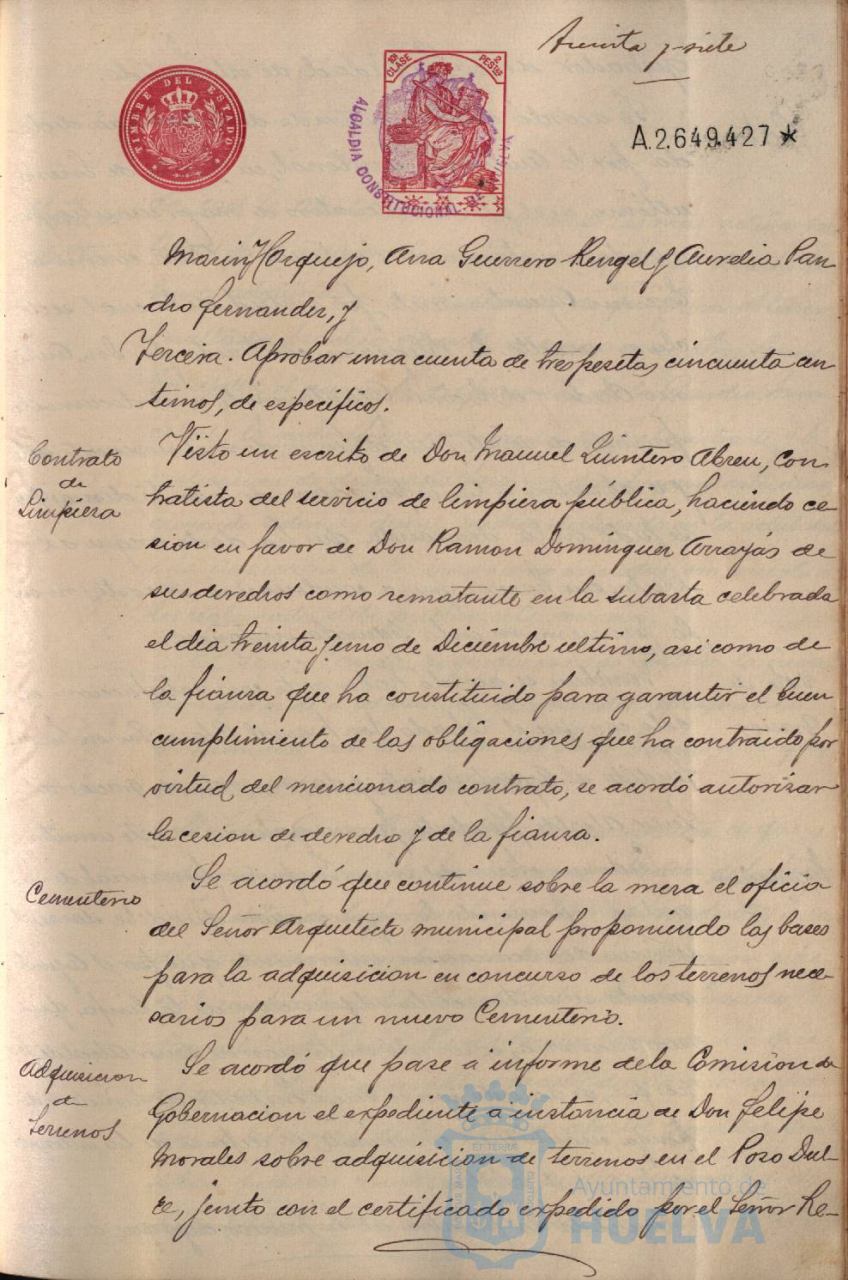 treinta y siete
TIMBRE DEL ESTADO
10ª CLASE
2 PESTAS
ALCALDIA CONSTITUCIONAL DE HUELVA
A.2.649.427 *
Marin Horquejo, Ana Guerrero Rengel y Aurelia Pan-
dro Fernandez, y
Tercera. Aprobar una cuenta de tres pesetas cincuenta cen
timos, de especificos.
Contrato
de
Limpieza
Visto un escrito de Don Manuel Quintero Abreu, con
tratista del servicio de limpieza pública, haciendo ce
sion en favor de Don Ramon Dominguez Arrayás de
sus derechos como rematante en la subasta celebrada
el dia treinta y uno de Diciembre ultimo, asi como de
la fianza que ha constituido para garantir el buen
cumplimiento de las obligaciones que ha contraido por
virtud del mencionado contrato, se acordó autorizar
la cesion de derecho y de la fianza.
Cementerio
Se acordó que continue sobre la mesa el oficio
del Señor Arquitecto municipal proponiendo las bases
para la adquisicion en concurso de los terrenos nece-
sarios para un nuevo Cementerio.
Adquisicion
de
terrenos
Se acordó que pase a informe de la Comision de
Gobernacion el expediente a instancia de Don Felipe
Morales sobre adquisicion de terrenos en el Pozo Dul-
ce, junto con el certificado expedido por el Señor Re-
Ayuntamiento de
HUELVA